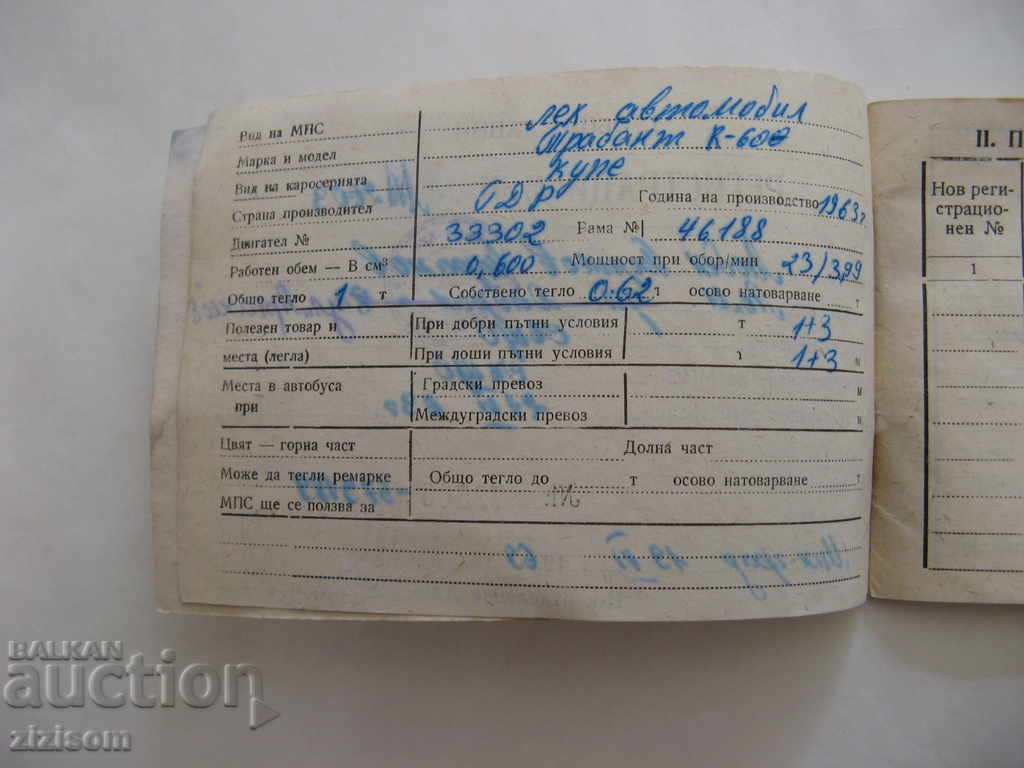 Вид на МПС лек автомобил
Марка и модел Трабант К-600
Вид на каросерията купе
Страна производител ГДР Година на производство 1963 г
Двигател № 33302 Рама № 46188
Работен обем — В см³ 0,600 Мощност при обор/мин 23/3,99
Общо тегло 1 т Собствено тегло 0.62 т осово натоварване т
Полезен товар и При добри пътни условия т 1+3
места (легла) При лоши пътни условия 1+3 м
Места в автобуса Градски превоз м
при Междуградски превоз м
Цвят — горна част Долна част
Може да тегли ремарке Общо тегло до т осово натоварване т
МПС ще се ползва за
II. П
Нов реги-
страцио-
нен №
1
BALKAN
auction
zizisom